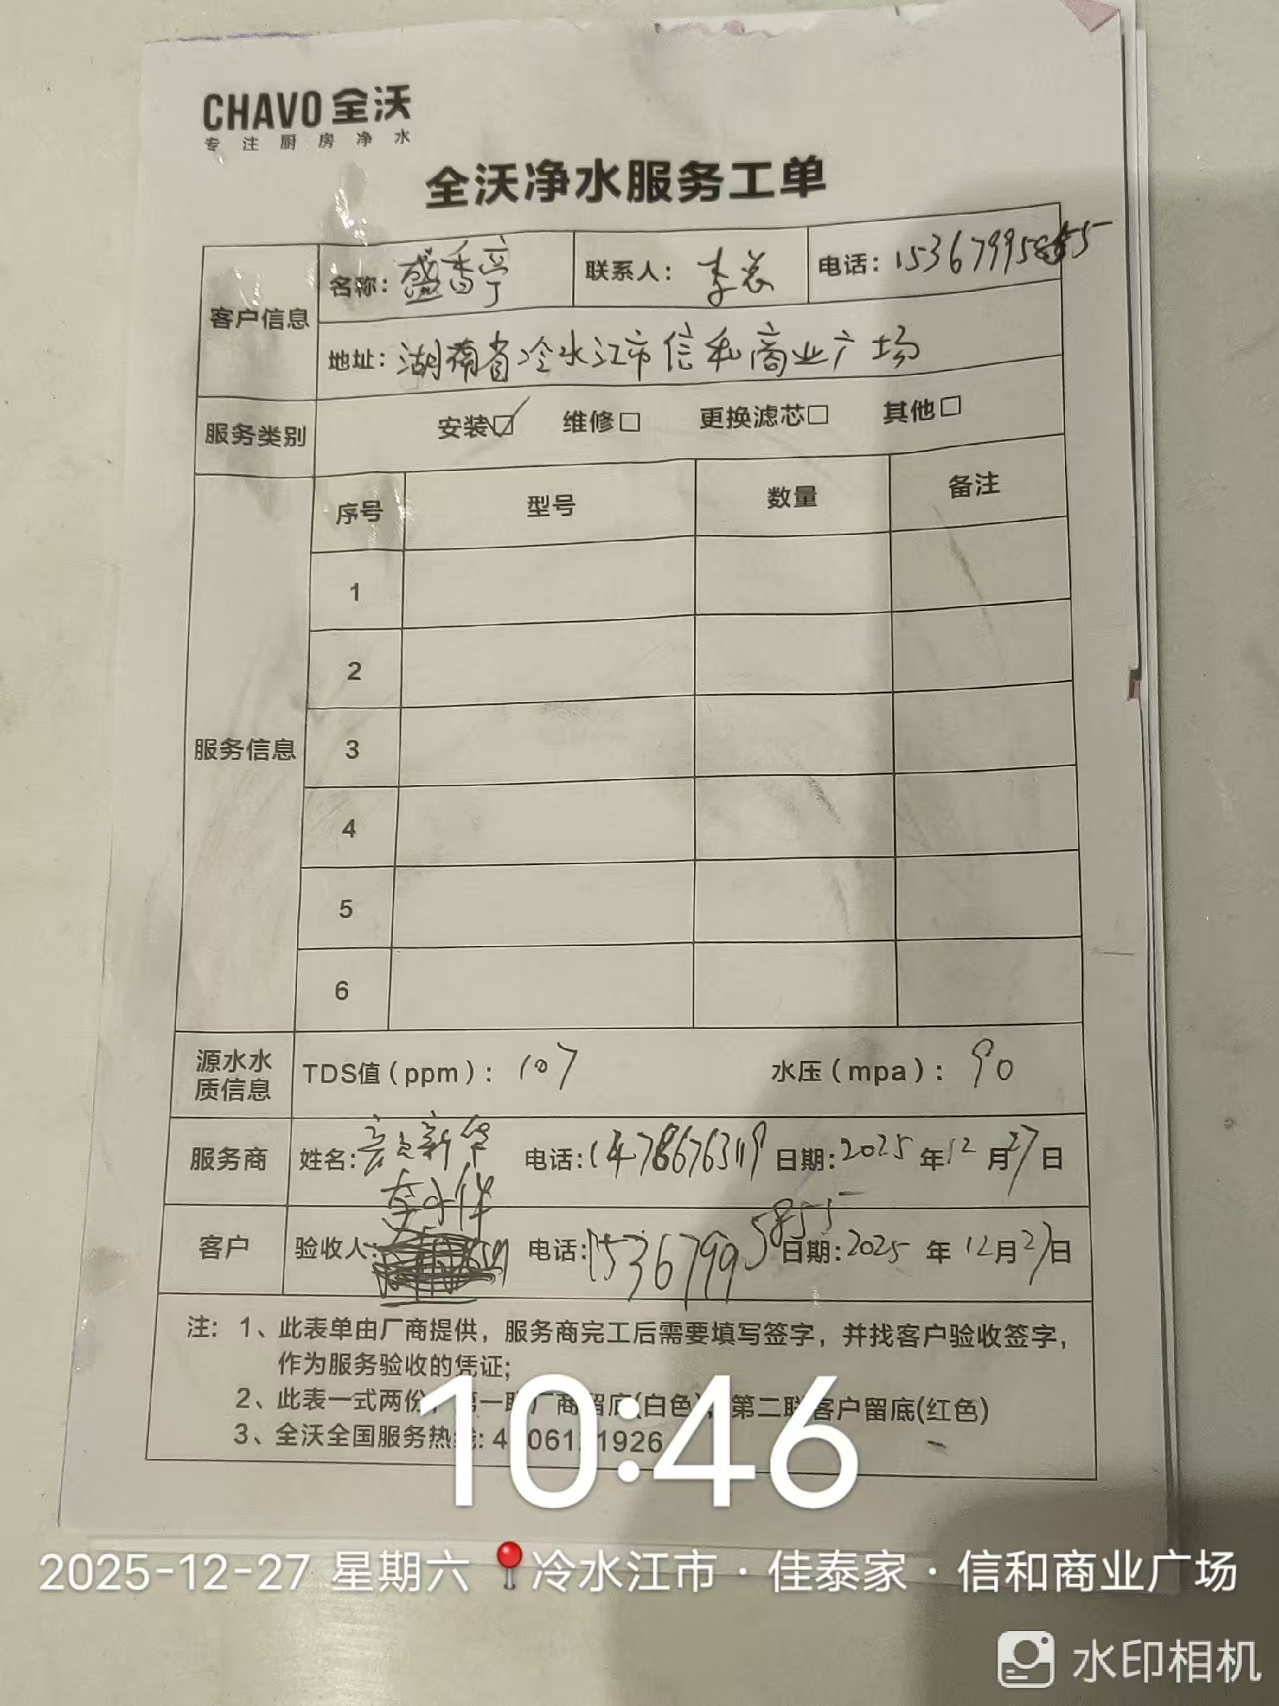 CHAVO 全沃
专注厨房净水
全沃净水服务工单
客户信息 名称: 盛香亭 联系人: 李总 电话: 15367995855
地址: 湖南省冷水江市信和商业广场
服务类别 安装☑ 维修□ 更换滤芯□ 其他□
服务信息 序号 型号 数量 备注
1
2
3
4
5
6
源水水质信息 TDS值(ppm): 107 水压(mpa): 90
服务商 姓名: 新华 电话: 14786763119 日期: 2025 年 12 月 27 日
客户 验收人: 李 电话: 15367995855 日期: 2025 年 12 月 27 日
注: 1、此表单由厂商提供，服务商完工后需要填写签字，并找客户验收签字，
作为服务验收的凭证;
2、此表一式两份，第一联厂商留底(白色)，第二联客户留底(红色)
3、全沃全国服务热线:
10:46
2025-12-27 星期六 冷水江市·佳泰家·信和商业广场
水印相机